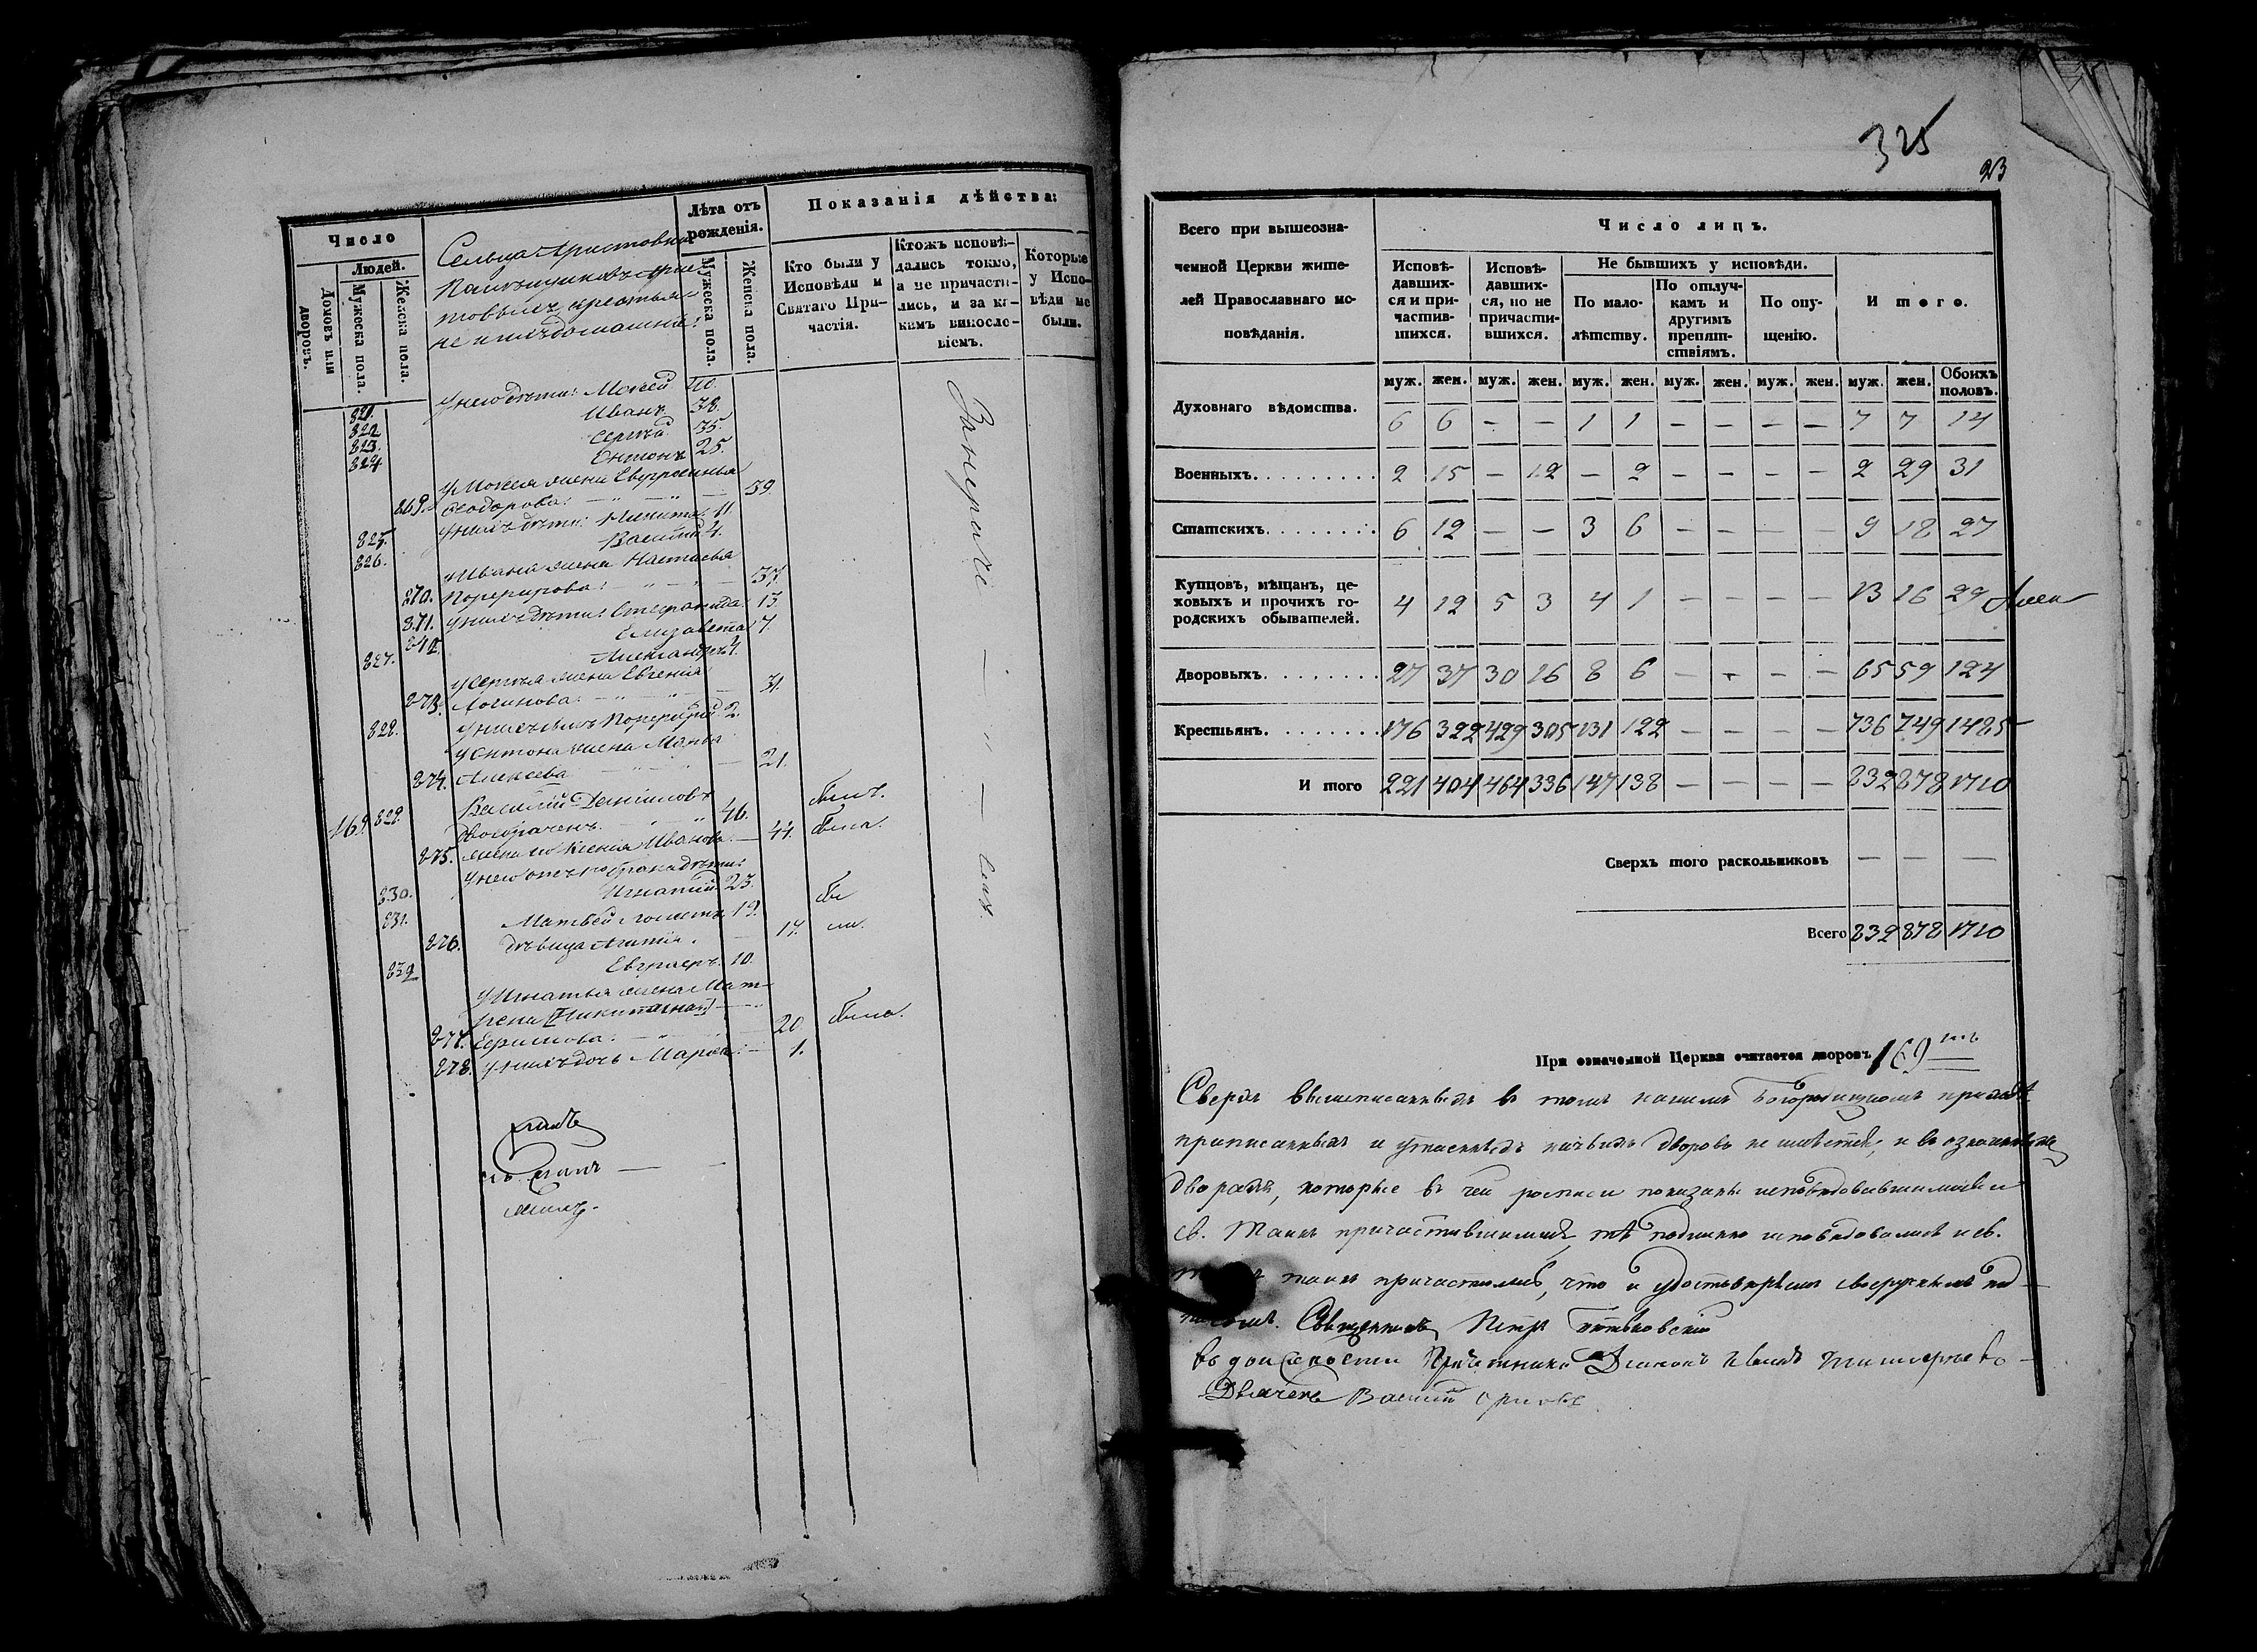 Число
Людей.
Домовъ или дворовъ.
Мужеска пола.
Женска пола.
Сельца Аристовка
Помѣщиковъ Арис-
товыхъ крестья-
не и ихъ домашніе:
Лѣта отъ рожденія.
Мужеска пола.
Женска пола.
Показанія дѣйства:
Кто были у Исповѣди и Святаго При-частія.
Ктожъ исповѣ-дались токмо, а не причасти-лись, и за ка-кимъ винословіемъ.
Которые у Испо-вѣди не были.
821. У него дѣти: Мокей 40.
822 Иванъ 38.
823. Сергѣй 35.
824 Антонъ 25.
У Мокея жена Евфросинья
869. Ѳеодорова: 39.
825. У нихъ дѣти: Никита 11.
826. Василій 4.
У Ивана жена Настасья
870. Порфирова: 37.
871. У нихъ дѣти: Стефанида: 13.
872. Елизавета 7
827. Александръ 4.
У Сергѣя жена Евгенія
873. Логинова: 31.
828. У нихъ сынъ Порфирій 2.
У Антона жена Марья
874. Алексѣева 21.
169. 829. Василій Даниловъ
двоебраченъ. 46. былъ.
875. жена его Ксенія Иванова 44. была.
У него отъ 1го брака дѣти:
830. Игнатій 23. бы
831. Матвей холостъ 19.
876. дѣвица 17. ли.
832 Евграфъ. 10.
У Игнатья жена Мат-
рена
877. Ефимова: 20 была.
878. У нихъ дочь Марѳа: 1.
325
23
Всего при вышеозна-
ченной Церкви жите-
лей Православнаго ис-
повѣданія.
Число лицъ.
Исповѣ-давших-ся и при-частив-шихся.
Исповѣ-давших-ся, но не причасти-вшихся.
Не бывшихъ у исповѣди.
По мало-лѣтству.
По отлуч-камъ и другимъ препят-ствіямъ.
По опу-щенію.
И того.
муж. жен. муж. жен. муж. жен. муж. жен. муж. жен. муж. жен. Обоихъ половъ.
Духовнаго вѣдомства. 6 6 — — 1 1 — — — — 7 7 14
Военныхъ. 2 15 — 12 — 2 — — — — 2 29 31
Статскихъ. 6 12 — — 3 6 — — — — 9 18 27
Купцовъ, мѣщанъ, це-
ховыхъ и прочихъ го-
родскихъ обывателей. 4 12 5 3 4 1 — — — — 13 16 29
Дворовыхъ. 27 37 30 16 8 6 — — — — 65 59 124
Крестьянъ. 176 322 429 305 131 122 — — — — 736 749 1485
И того 221 404 464 336 147 138 — — — — 832 878 1710
Сверхъ того раскольниковъ — — —
Всего 832 878 1710
При означенной Церкви считается дворовъ 169
Сверхъ вышеписанныхъ въ томъ нашемъ Богородицкомъ приходѣ
приписанныхъ и утаенныхъ никакихъ дворовъ не имѣется, и въ означенныхъ
дворахъ, которые въ сей росписи показаны исповѣдовавшимися и
св. Таинъ причастившимися, тѣ подлинно исповѣдовались и св.
таинъ причастились, что и удостовѣряемъ своеручнымъ под-
писомъ. Священникъ Петръ
въ должности Причетника Діаконъ
Дьячекъ Василій